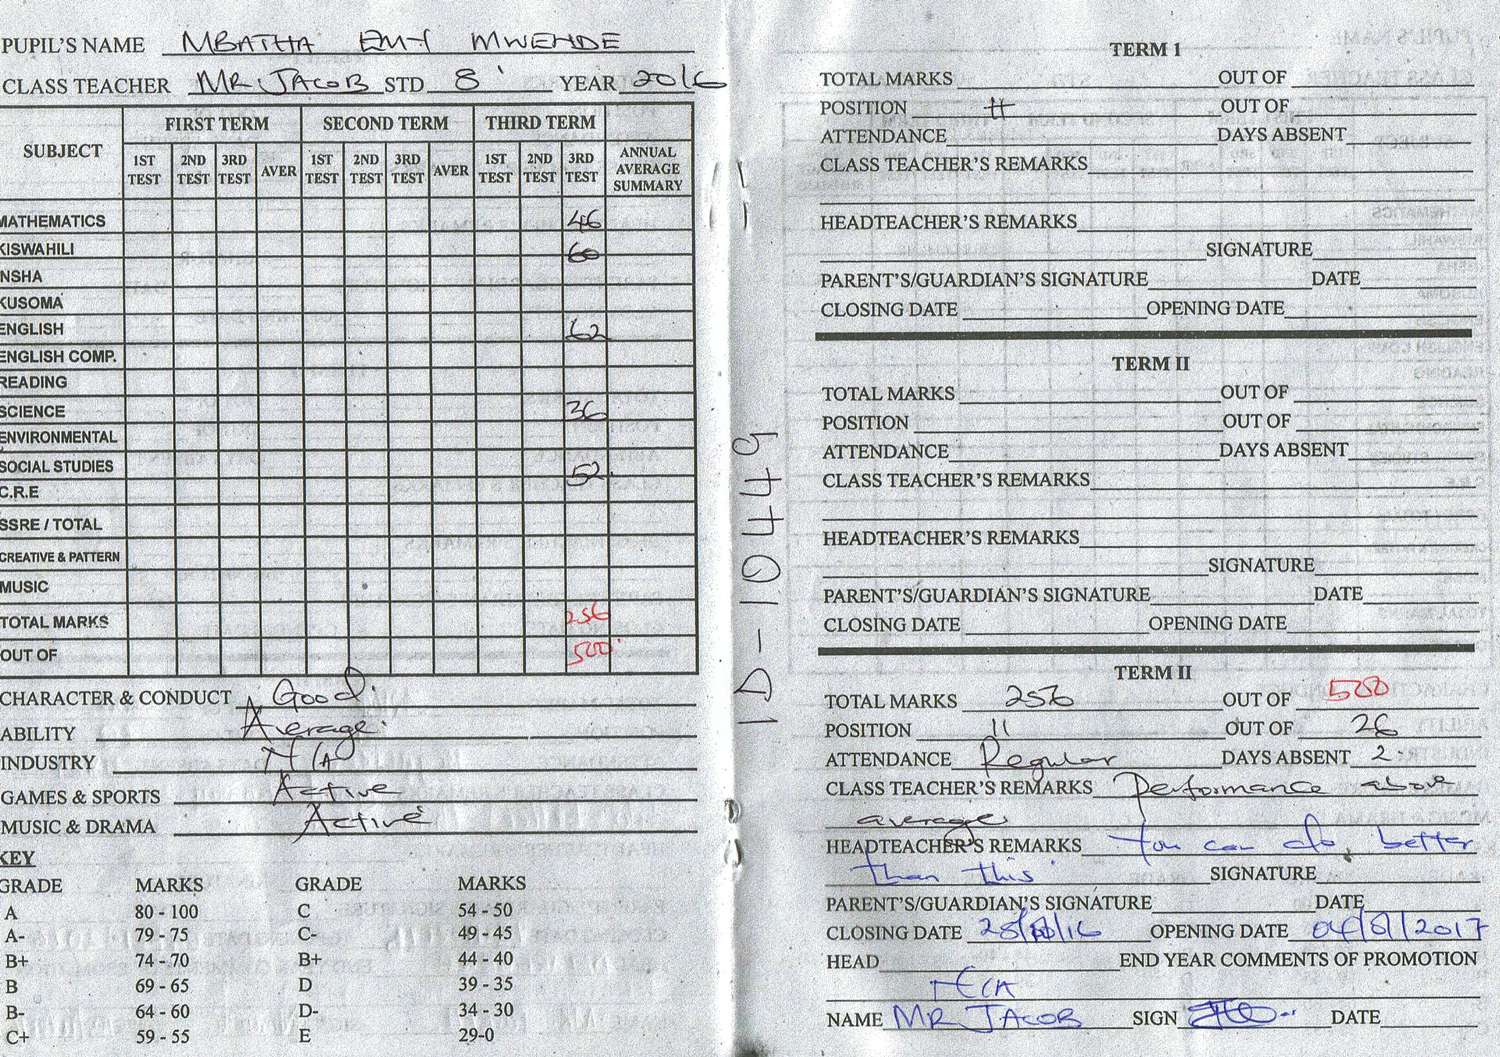 PUPIL'S NAME MBATHA EMY MWENDE
CLASS TEACHER MR JACOB STD 8 YEAR 2016
SUBJECT FIRST TERM SECOND TERM THIRD TERM
1ST TEST 2ND TEST 3RD TEST AVER 1ST TEST 2ND TEST 3RD TEST AVER 1ST TEST 2ND TEST 3RD TEST ANNUAL AVERAGE SUMMARY
MATHEMATICS 46
KISWAHILI 60
INSHA
KUSOMA
ENGLISH 62
ENGLISH COMP.
READING
SCIENCE 36
ENVIRONMENTAL
SOCIAL STUDIES 52
C.R.E
SSRE / TOTAL
CREATIVE & PATTERN
MUSIC
TOTAL MARKS 256
OUT OF 500
CHARACTER & CONDUCT Good
ABILITY Average
INDUSTRY N/A
GAMES & SPORTS Active
MUSIC & DRAMA Active
KEY
GRADE MARKS GRADE MARKS
A 80 - 100 C 54 - 50
A- 79 - 75 C- 49 - 45
B+ 74 - 70 B+ 44 - 40
B 69 - 65 D 39 - 35
B- 64 - 60 D- 34 - 30
C+ 59 - 55 E 29-0
1D-10449
TERM 1
TOTAL MARKS OUT OF
POSITION OUT OF
ATTENDANCE DAYS ABSENT
CLASS TEACHER'S REMARKS
HEADTEACHER'S REMARKS
SIGNATURE
PARENT'S/GUARDIAN'S SIGNATURE DATE
CLOSING DATE OPENING DATE
TERM II
TOTAL MARKS OUT OF
POSITION OUT OF
ATTENDANCE DAYS ABSENT
CLASS TEACHER'S REMARKS
HEADTEACHER'S REMARKS
SIGNATURE
PARENT'S/GUARDIAN'S SIGNATURE DATE
CLOSING DATE OPENING DATE
TERM II
TOTAL MARKS 256 OUT OF 500
POSITION 11 OUT OF 26
ATTENDANCE Regular DAYS ABSENT 2
CLASS TEACHER'S REMARKS Performance above
average
HEADTEACHER'S REMARKS You can do better
than this SIGNATURE
PARENT'S/GUARDIAN'S SIGNATURE DATE
CLOSING DATE OPENING DATE
HEAD END YEAR COMMENTS OF PROMOTION
NAME MR JACOB SIGN DATE